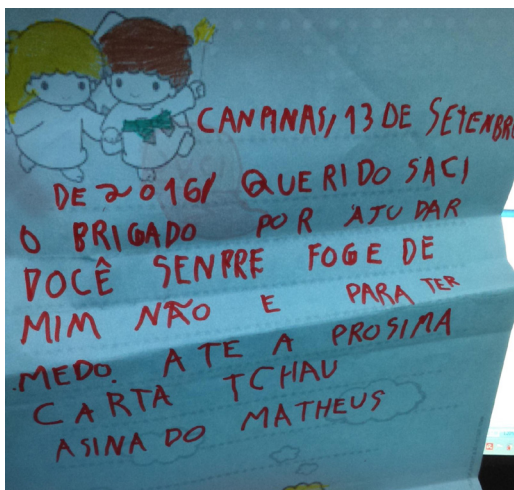 CANPINAS, 13 DE SETENBRO
DE 2016/ QUERIDO SACI
O BRIGADO POR AJUDAR
VOCÊ SENPRE FOGE DE
MIM NÃO E PARA TER
MEDO. A TE A PROSIMA
CARTA TCHAU
ASINADO MATHEUS